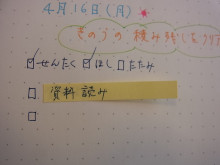 4月16日(月)
きのうの積み残しをクリア
☑せんたく ☑ほし □たたみ
□ 資料読み
□